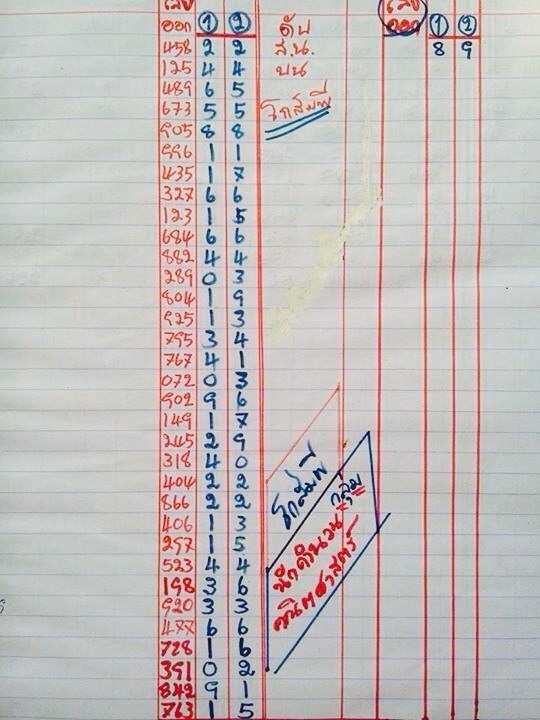 เลข
ออก ① ②
458 2 2
125 4 4
489 6 5
673 5 5
905 8 8
996 1 1
435 1 7
327 6 6
123 1 5
684 6 6
882 4 4
289 0 3
804 1 9
925 1 3
795 3 4
767 4 1
072 0 3
902 9 6
149 1 7
245 2 9
318 4 0
404 2 2
866 2 2
406 1 3
297 1 5
523 4 4
198 3 6
920 3 3
477 6 6
728 1 6
391 0 2
842 9 1
763 1 5
ดับ
ส.น.
บน
โกสัมพี
เลข
ออก ① ②
8 9
โกสัมพี
กลุ่ม
นักคำนวน
คณิตศาสตร์